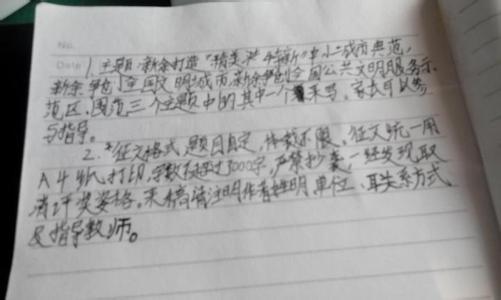 No.
Date 1. 主题: 新余打造"精美洋特新"中小城市典范,
新余争创全国文明城市,新余争创全国公共文明服务示
范区,围绕三个主题中的其中一个来写,家长可以参
与指导。
2. *征文格式,题目自定,体裁不限,征文统一用
A4纸打印,字数不超过3000字,严禁抄袭一经发现取
消评奖资格。来稿请注明作者姓明单位、联系方式、
及指导教师。